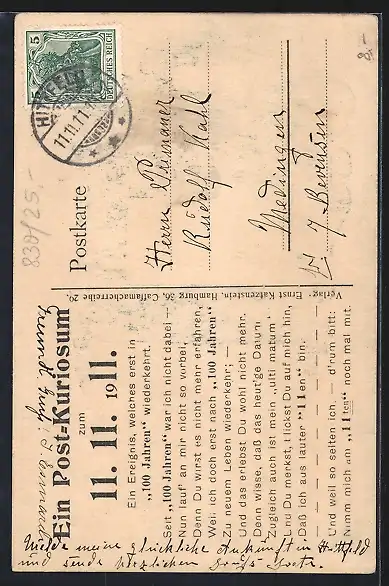 Ein Post-Kuriosum
zum
11. 11. 1911.
Ein Ereignis, welches erst in
„100 Jahren" wiederkehrt.
Seit „100 Jahren" war ich nicht dabei —
Nun lauf' an mir nicht so vorbei,
Denn Du wirst es nicht mehr erfahren,
Weil ich doch erst nach „100 Jahren"
Zu neuem Leben wiederkehr; —
Und das erlebst Du wohl nicht mehr.
Denn wisse, daß das heut'ge Datum
Zugleich auch ist mein „ulti matum"
Und Du merkst, blickst Du auf mich hin,
Daß ich aus lauter "11en" bin.
Und weil so selten ich, — d'rum bitt:
Nimm mich am „11ten" noch mal mit.
Verlag: Ernst Katzenstein, Hamburg 36, Caffamacherreihe 29.
Postkarte
Herrn Primaner
Rudolf Kahl
Medingen
b/ Bevensen
5
DEUTSCHES REICH
11.11.11
830/25.-
8.-
Melde meine glückliche Ankunft in Hittfeld
und sende herzlichen Gruß